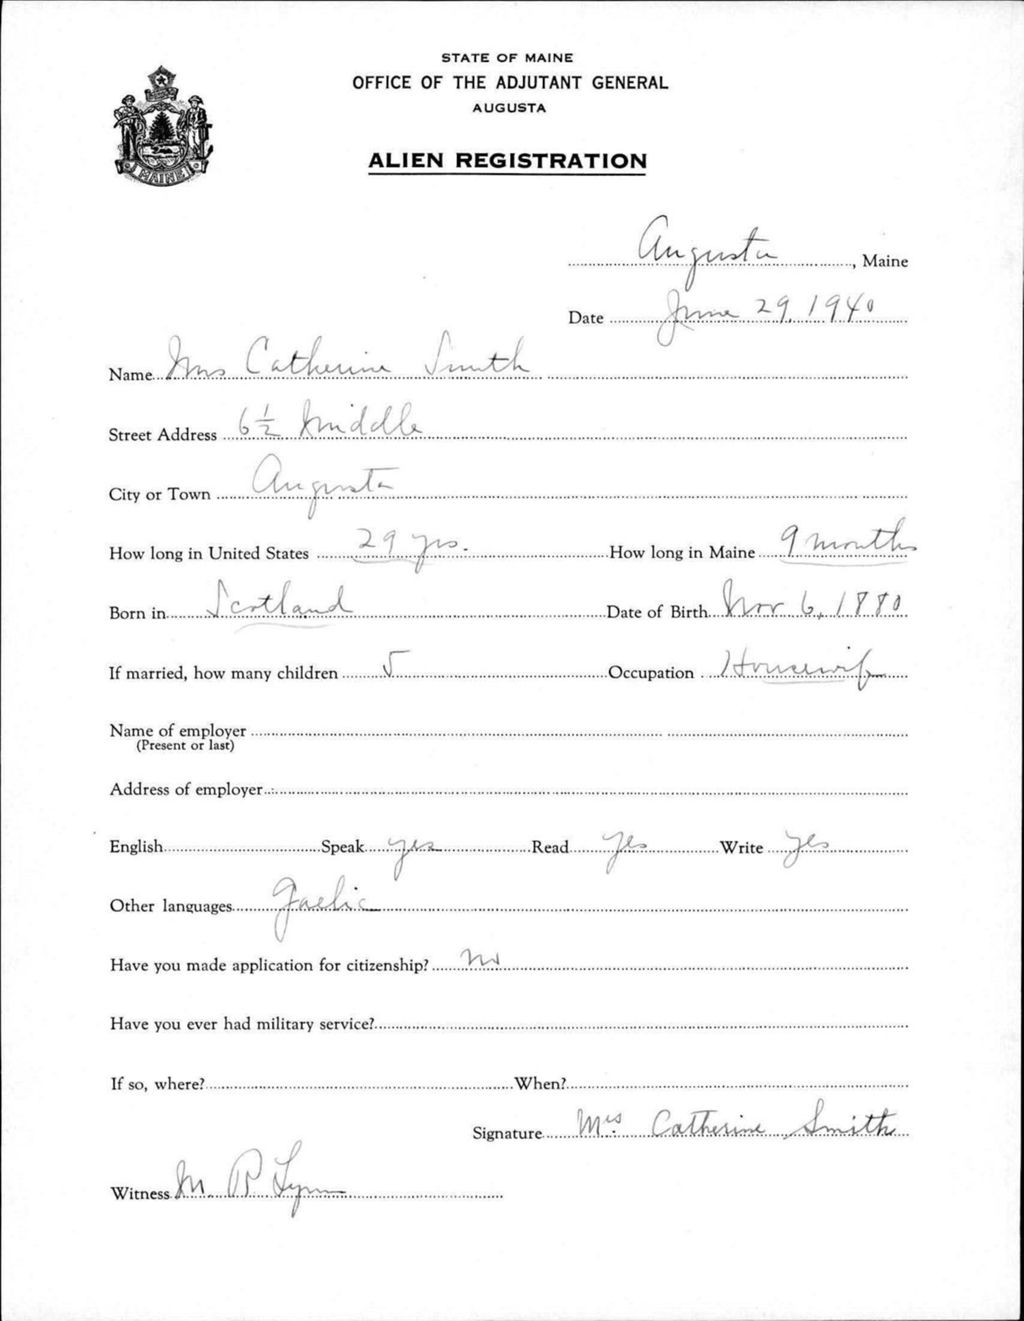 STATE OF MAINE
OFFICE OF THE ADJUTANT GENERAL
AUGUSTA
MAINE
ALIEN REGISTRATION
Augusta, Maine
Date June 29, 1940
Name Mrs Catherine Smith
Street Address 6 1/2 Middle
City or Town Augusta
How long in United States 29 yrs. How long in Maine 9 months
Born in Scotland Date of Birth Nov 6, 1880
If married, how many children 5 Occupation Housewife
Name of employer
(Present or last)
Address of employer
English Speak yes Read yes Write yes
Other languages Gaelic
Have you made application for citizenship? No
Have you ever had military service?
If so, where? When?
Signature Mrs Catherine Smith
Witness M P Lynn